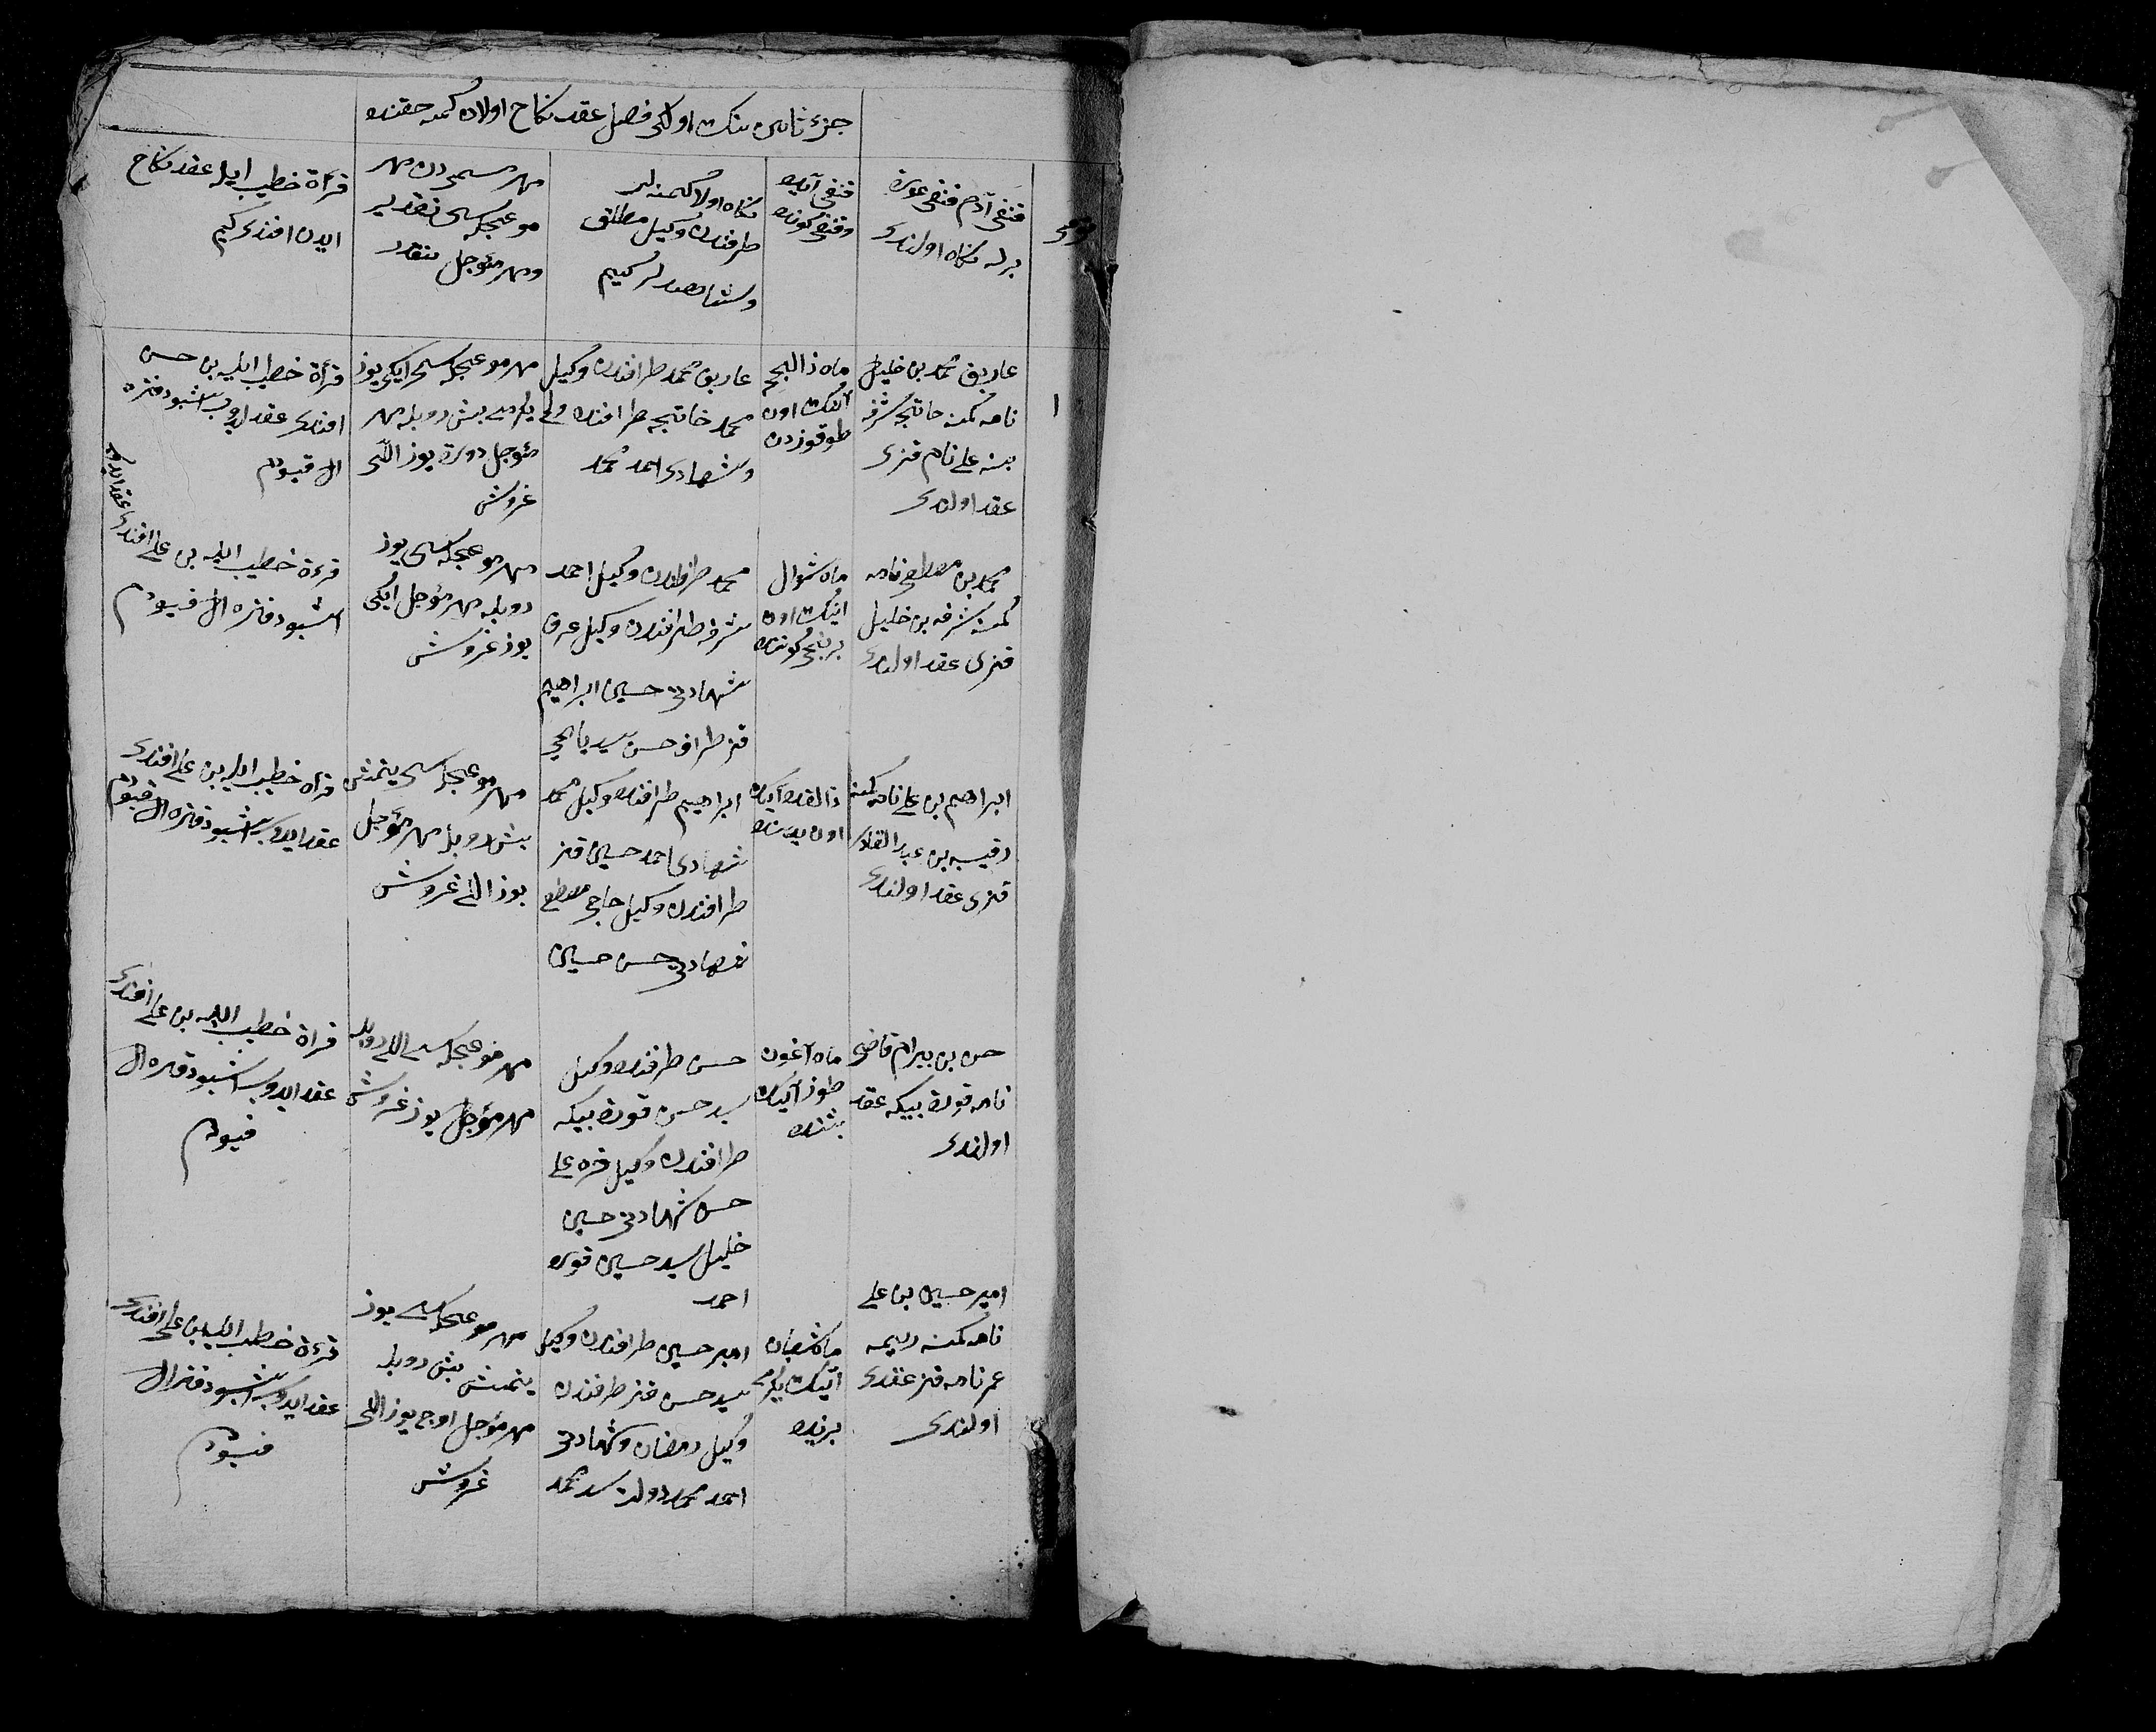 جزء ثانی نك اولكی فصل عقد نكاح اولان كمسه حقنده
قنغی آدم قنغی عورة
برله نكاه اولندی
قنغی آیده
وقنغی كونده
نكاه اولا كمسنه لر
طرفندن وكیل مطلق
وشاهدلر كیم
مهر مسمی دن مهر
موعجلسی نقدیر
ومهر مؤجل نقدر
قرأة خطیب ایله عقد نكاح
ایدن افندی كیم
١
عاریف محمد بن خلیل
نامه كمسنه خاتیجه شرفه
بنت علی نام قزی
عقد اولندی
ماه ذالحجه
آنك اون
طوقوزدن
عاریف محمد طرافندن وكیل
محمد خاتیجه طرافنده ولی
وشهادی احمد محمد
مهر موعجلسی ایكی یوز
یلرمی بش روبله مهر
مؤجل دورة یوز اللی
غروش
قرأة خطیب ایله بن حسن
افندی عقد ایدوب اشبو دفتره
ال قیودم
محمد بن مصطفی نامه
كمسنه شرفه بن خلیل
قزی عقد اولندی
ماه شوال
اینك اون
برنجی كونده
محمد طرفندن وكیل احمد
شرفه طرافندن وكیل عرف
شهادی حسین ابراهیم
قز طراف حسن سید یاحی
مهر موعجلسی یوز
روبله مهر مؤجل ایكی
یوز غروش
قرءة خطیب ایله بن علی افندی عقد ایدوب
اشبو دفتره ال قیودم
ابراهیم بن علی نامه كمسنه
رقیه بن عبد القادر
قزی عقد اولندی
ذالقده آینك
اون یدینده
ابراهیم طرافنده وكیل محمد
شهادی احمد حسین قز
طرافندن وكیل حاجی مصطفی
شهادی حسن حسین
مهر موعجلسی یتمش
بش روبله مهر مؤجل
یوز اللی غروش
قرأة خطیب ایله بن علی افندی
عقد ایدوب اشبو دفتره ال قیودم
حسن بن بیرام قاضی
نامه قورة بیكه عقد
اولندی
ماه آغون
طوز آینك
بشنده
حسن طرفنده وكیل
سید حسن قورة بیكه
طرافندن وكیل قره علی
حسن شهادی حسین
خلیل سید حسین قوره
احمد
مهر موعجلسی اللی روبله
مهر مؤجل یوز غروش
قرأة خطیب ایله بن علی افندی
عقد ایدوب اشبو دفتره ال
قیودم
امیر حسین بن علی
نامه كمسنه رسیمه
عمر نامه قز عقدی
اولندی
ماه شعبان
آینك یلرمی
برنده
امیر حسین طرافندن وكیل
سید حسن قز طرفندن
وكیل رمضان وشهادی
احمد محمد دولت سید محمد
مهر موعجلسی یوز
یتمش بش روبله
مهر مؤجل اوچ یوز اللی
غروش
قرءة خطیب ایله بن علی افندی
عقد ایدوب اشبو دفتر ال
قیودم